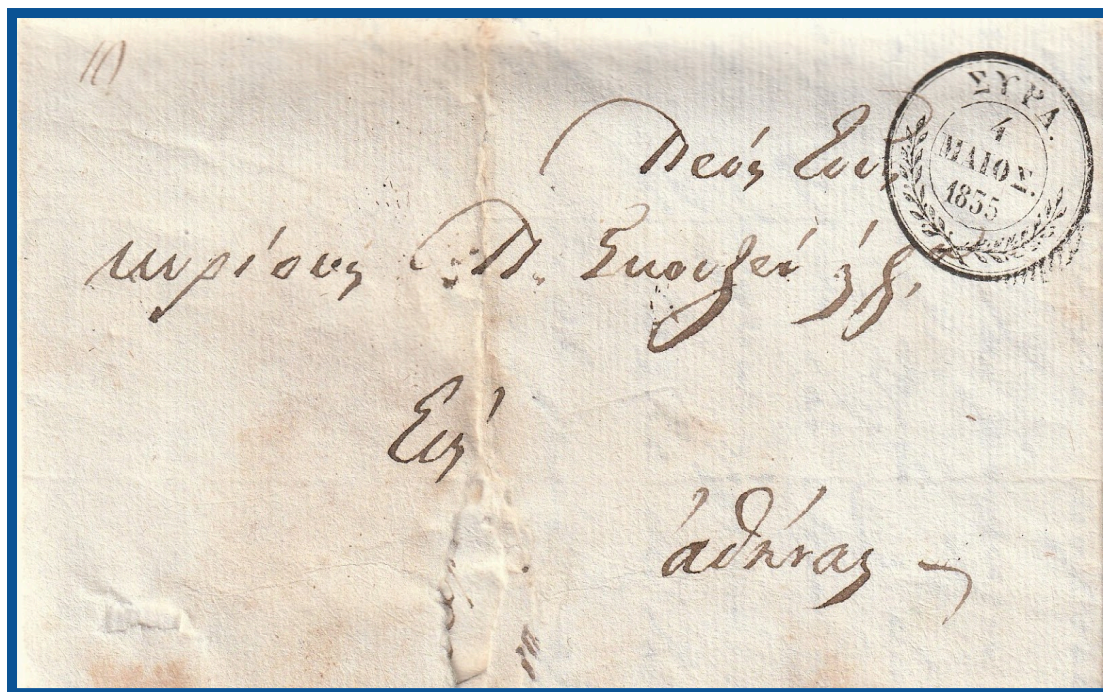 10
ΣΥΡΑ.
4
ΜΑΙΟΣ.
1855
Πρός τους
κυρίους Π. Σκουζέν
Εις
ἀθήνας